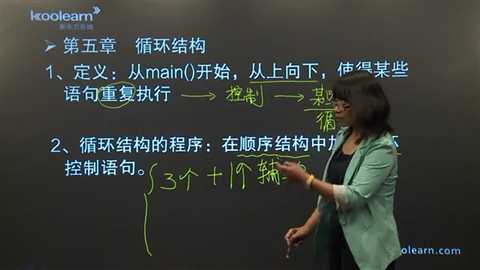 koolearn
新东方在线
第五章 循环结构
1、定义：从main()开始，从上向下，使得某些
语句重复执行 → 控制 → 某
循
2、循环结构的程序：在顺序结构中加
控制语句。
3个+1个辅
koolearn.com